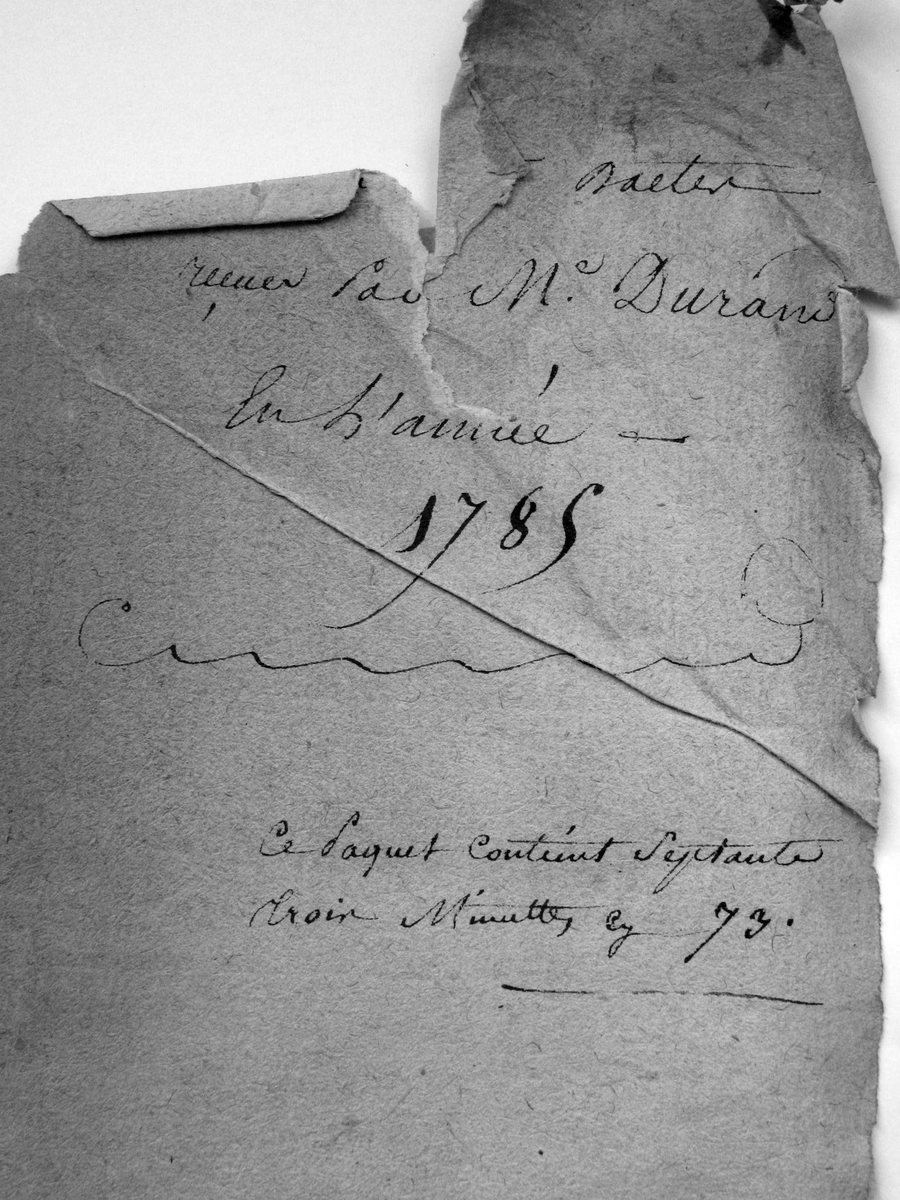 Actes
reçues Par Me. Durand
En L'année —
1785
Ce Paquet Contient Septante
trois Minuttes cy 73.